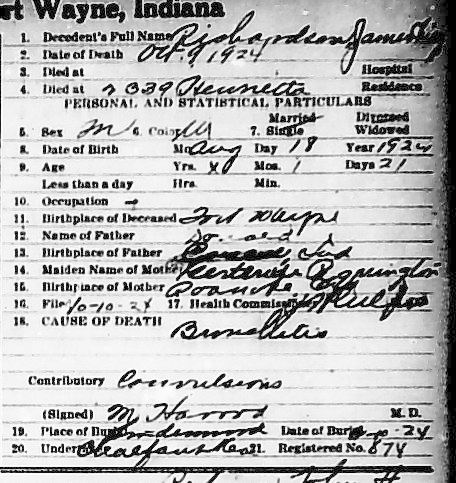 rt Wayne, Indiana
1. Decedent's Full Name Richardson James
2. Date of Death Oct. 9, 1924
3. Died at Hospital
4. Died at 2339 Henrietta Residence
PERSONAL AND STATISTICAL PARTICULARS
Married Divorced
5. Sex M 6. Color W 7. Single Widowed
8. Date of Birth Mo. Aug Day 18 Year 1924
9. Age Yrs. x Mos. 1 Days 21
Less than a day Hrs. Min.
10. Occupation -
11. Birthplace of Deceased Fort Wayne
12. Name of Father Donald
13. Birthplace of Father Ind
14. Maiden Name of Mother
15. Birthplace of Mother Roanoke
16. File 10-10-24 17. Health Commissioner
18. CAUSE OF DEATH
Bronchitis
Contributory Convulsions
(Signed) M Harrod M. D.
19. Place of Burial Lindenwood Date of Burial 10-24
20. Undertaker 21. Registered No. 874